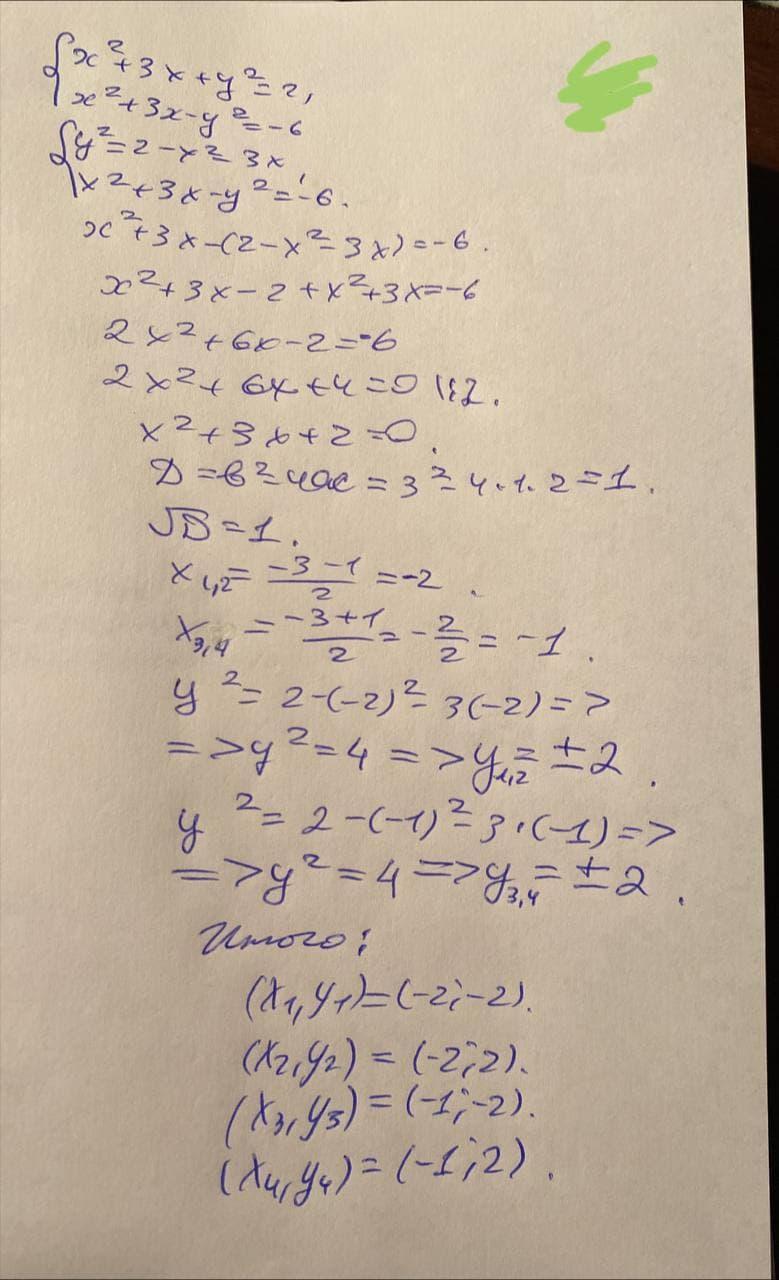 {x²+3x+y²=2,
x²+3x-y²=-6
{y²=2-x²-3x,
x²+3x-y²=-6.
x²+3x-(2-x²-3x)=-6.
x²+3x-2+x²+3x=-6
2x²+6x-2=-6
2x²+6x+4=0 |:2.
x²+3x+2=0.
D=b²-4ac=3²-4·1·2=1.
√D=1.
x₁,₂=(-3-1)/2=-2.
x₃,₄=(-3+1)/2=-2/2=-1.
y²=2-(-2)²-3(-2)=>
=>y²=4=>y₁,₂=±2.
y²=2-(-1)²-3·(-1)=>
=>y²=4=>y₃,₄=±2.
Итого:
(x₁,y₁)=(-2;-2).
(x₂,y₂)=(-2;2).
(x₃,y₃)=(-1;-2).
(x₄,y₄)=(-1;2).